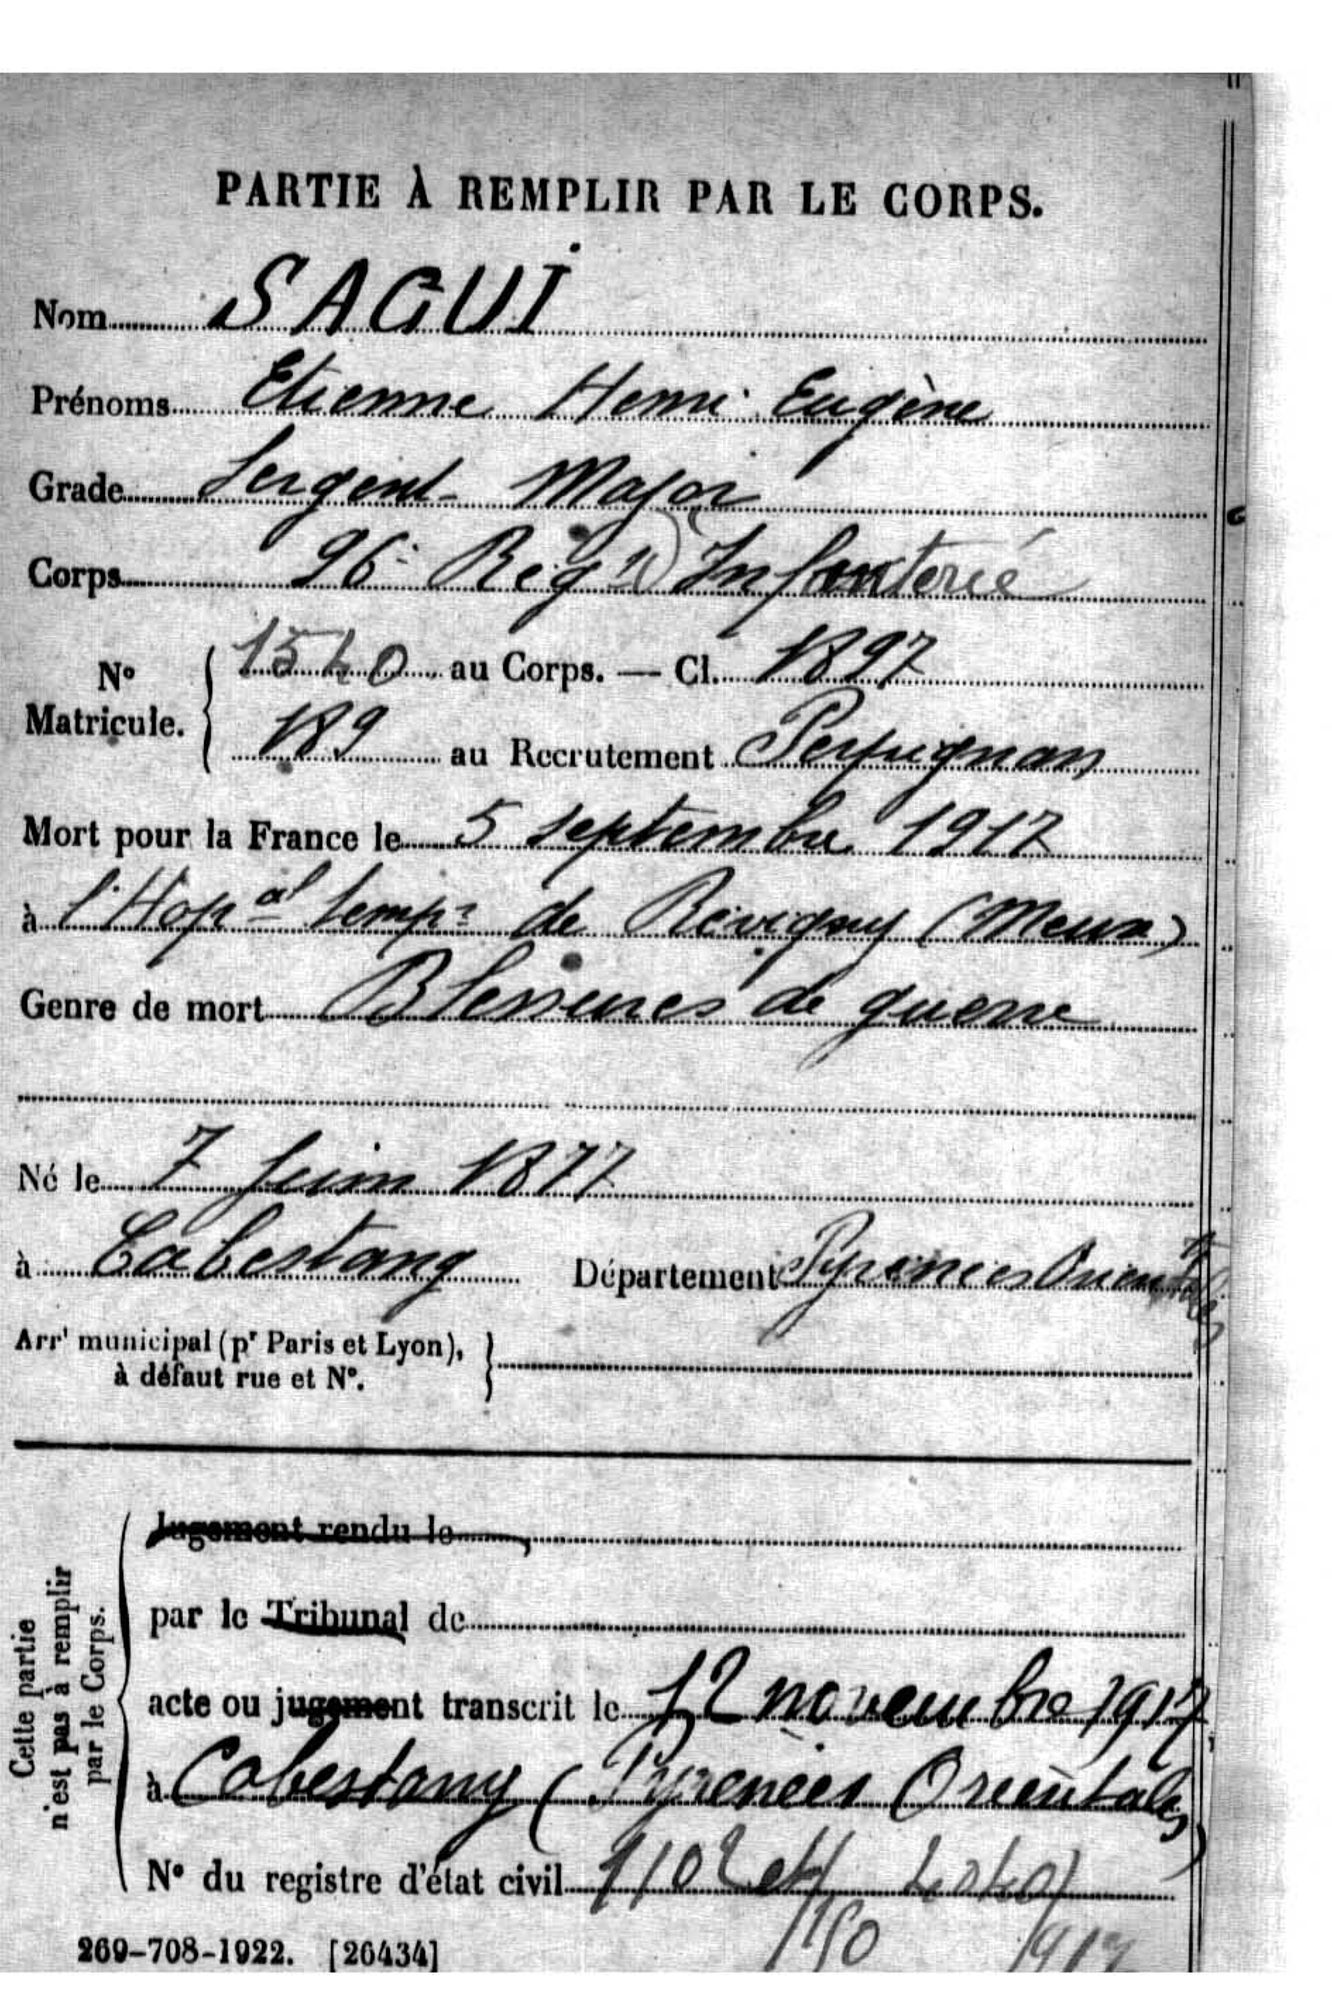 PARTIE À REMPLIR PAR LE CORPS.
Nom SAGUI
Prénoms Etienne Henri Eugène
Grade Sergent-Major
Corps 96e Régt d'Infanterie
No Matricule. 1540 au Corps. — Cl. 1897
189 au Recrutement Perpignan
Mort pour la France le 5 septembre 1917
à l'Hopal tempre de Révigny (Meuse)
Genre de mort Blessures de guerre
Né le 7 Juin 1877
à Cabestang Département Pyrénées Orientales
Arrt municipal (pr Paris et Lyon),
à défaut rue et N°.
Cette partie
n'est pas à remplir
par le Corps.
Jugement rendu le
par le Tribunal de
acte ou jugement transcrit le 12 novembre 1917
à Cabestany (Pyrénées Orientales)
N° du registre d'état civil
269-708-1922. [26434]